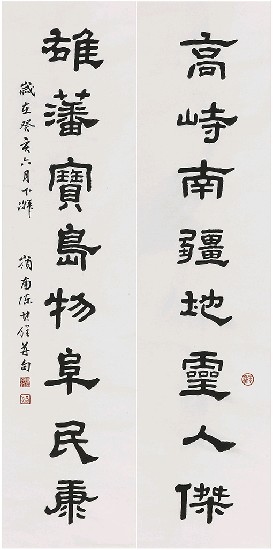 高峙南疆地靈人傑
雄藩寶島物阜民康
歲在癸亥六月下澣
嶺南陳